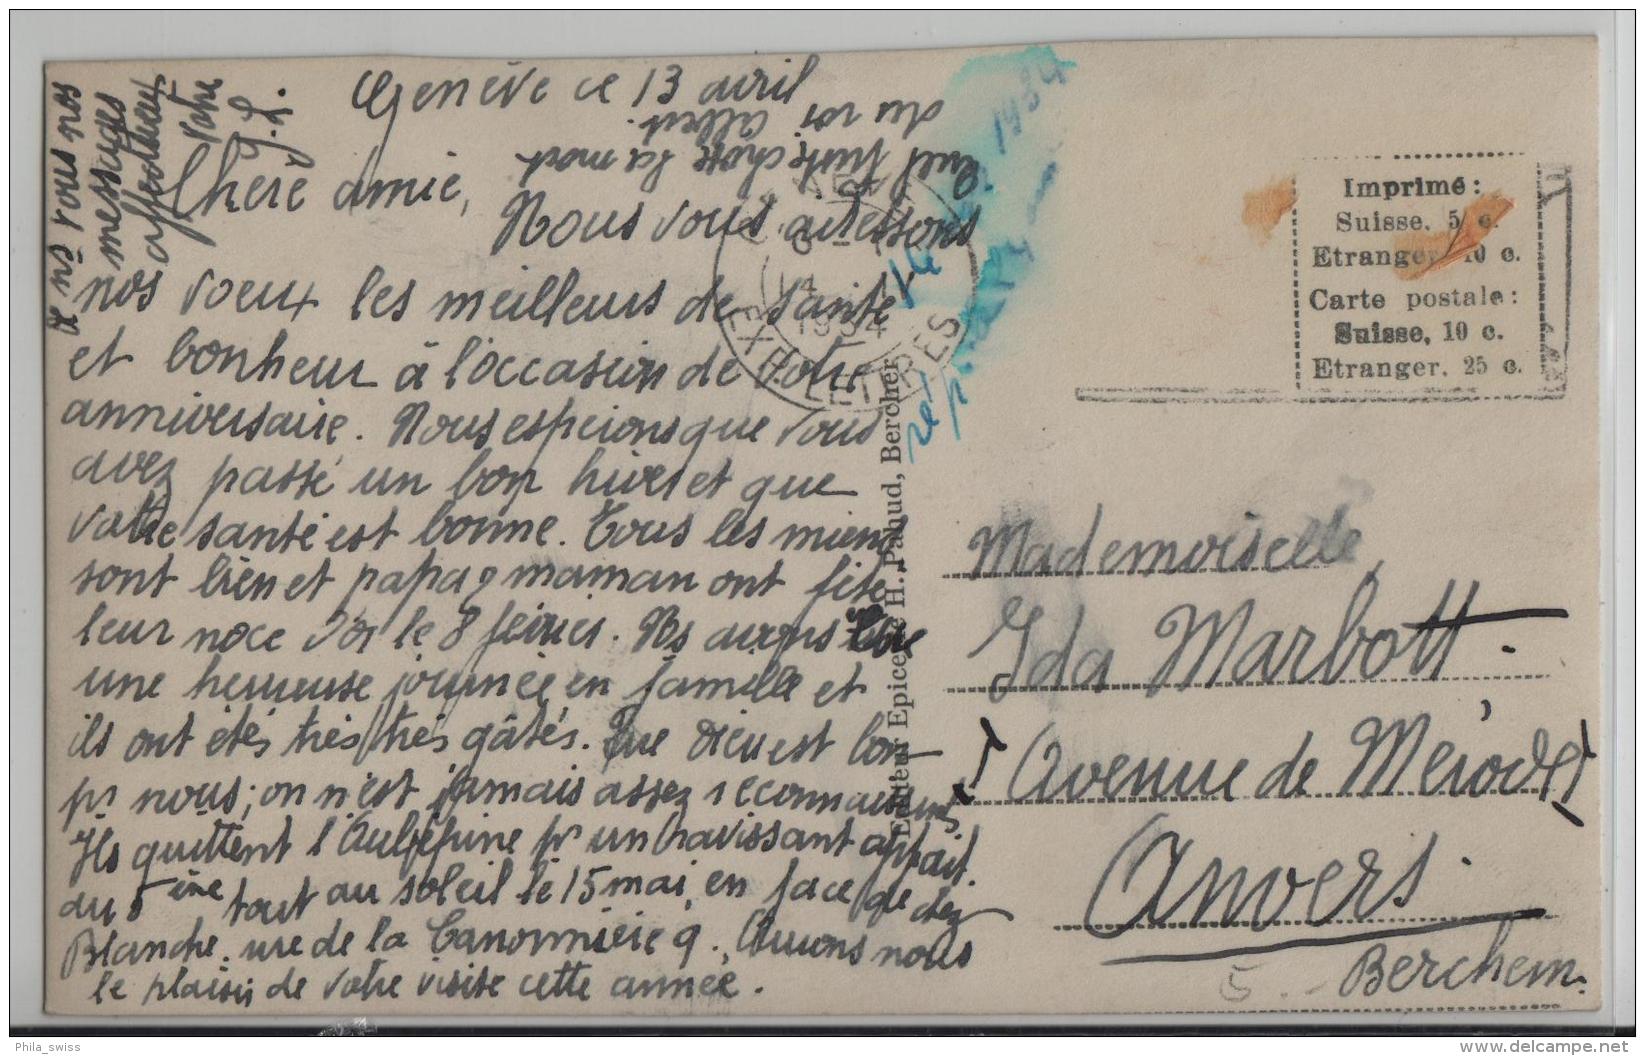 Genève ce 13 avril
Chère amie,
Nous vous adressons
nos voeux les meilleurs de santé
et bonheur à l'occasion de votre
anniversaire. Nous espérons que vous
avez passé un bon hiver et que
votre santé est bonne. Tous les miens
sont bien et papa & maman ont fêté
leur noce d'or le 8 février. Ns avons
une heureuse journée en famille et
ils ont étés très très gâtés. Que Dieu est bon
pr nous; on n'est jamais assez reconnaissants
Ils quittent l'Aubépine pr un ravissant appart.
du 5ième tout au soleil le 15 mai, en face de chez
Blanche. rue de la Canonnière 9. Aurons nous
le plaisir de votre visite cette année.
à vous nos
messages
affectueux
Votre
Quel triste chose la mort
du roi Albert.
1934
EXP. LETTRES
14
1934
Editeur Epicerie H. Pahud, Bercher
Imprimé:
Suisse, 5 c.
Etranger, 10 c.
Carte postale:
Suisse, 10 c.
Etranger. 25 c.
Mademoiselle,
Ida Marbott.
Avenue de Mérode
Anvers.
Berchem.
5
Phila_swiss
www.delcampe.net